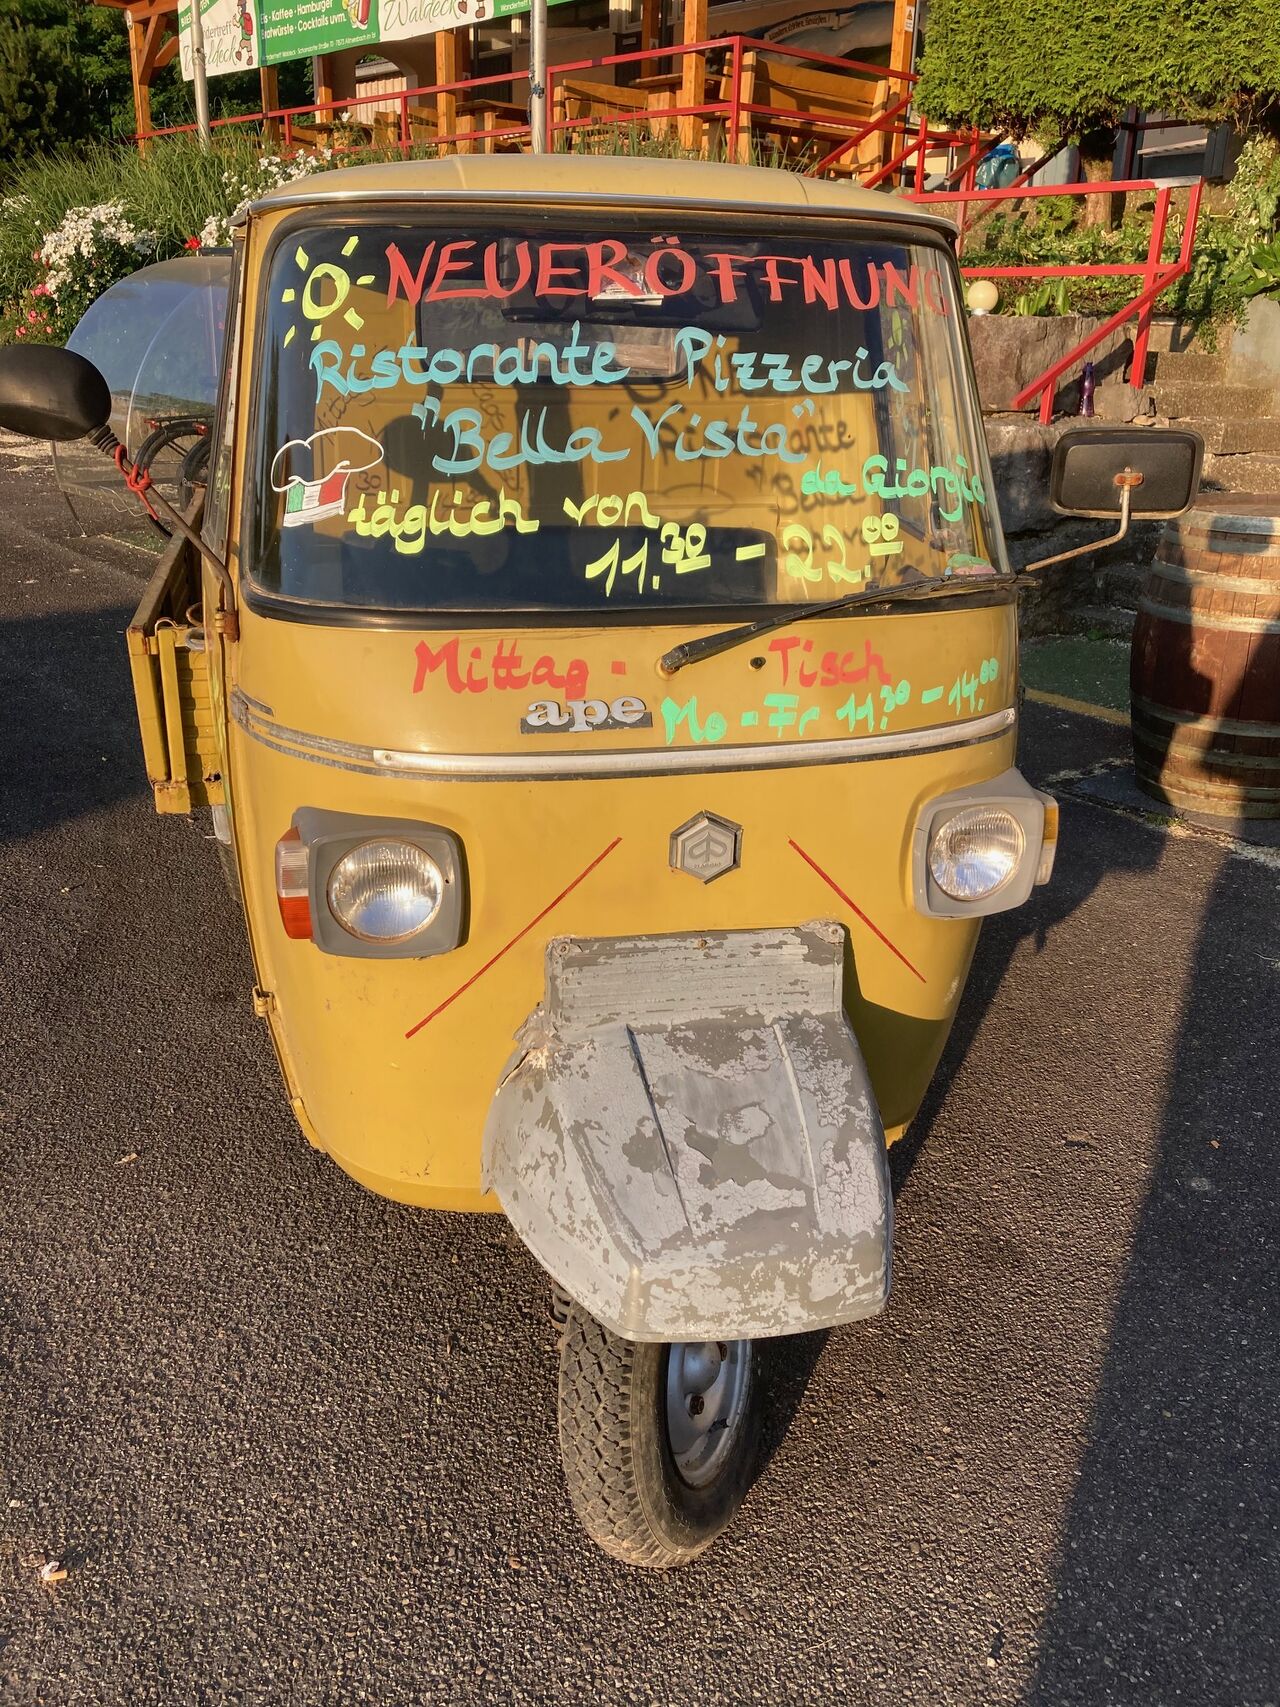 Eis • Kaffee • Hamburger
Bratwürste • Cocktails uvm.
Wandertreff Waldeck
Waldeck
NEUERÖFFNUNG
Ristorante Pizzeria
"Bella Vista"
da Giorgio
täglich von
11.30 - 22.00
Mittag - Tisch
ape
Mo - Fr 11.30 - 14.00